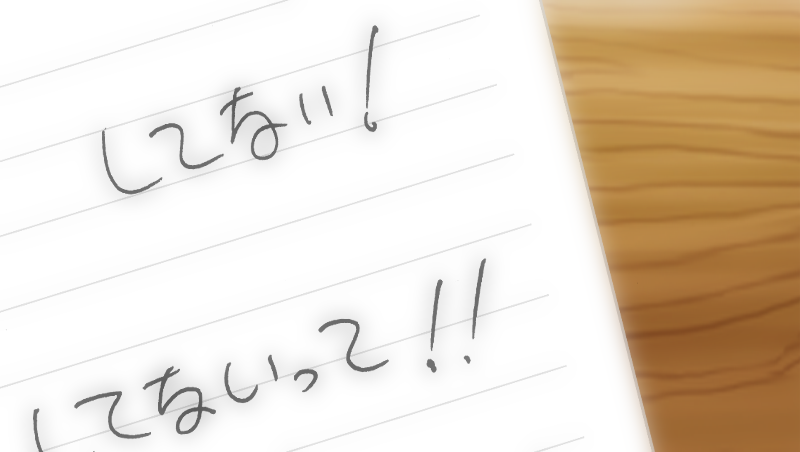 してない!
してないって!!